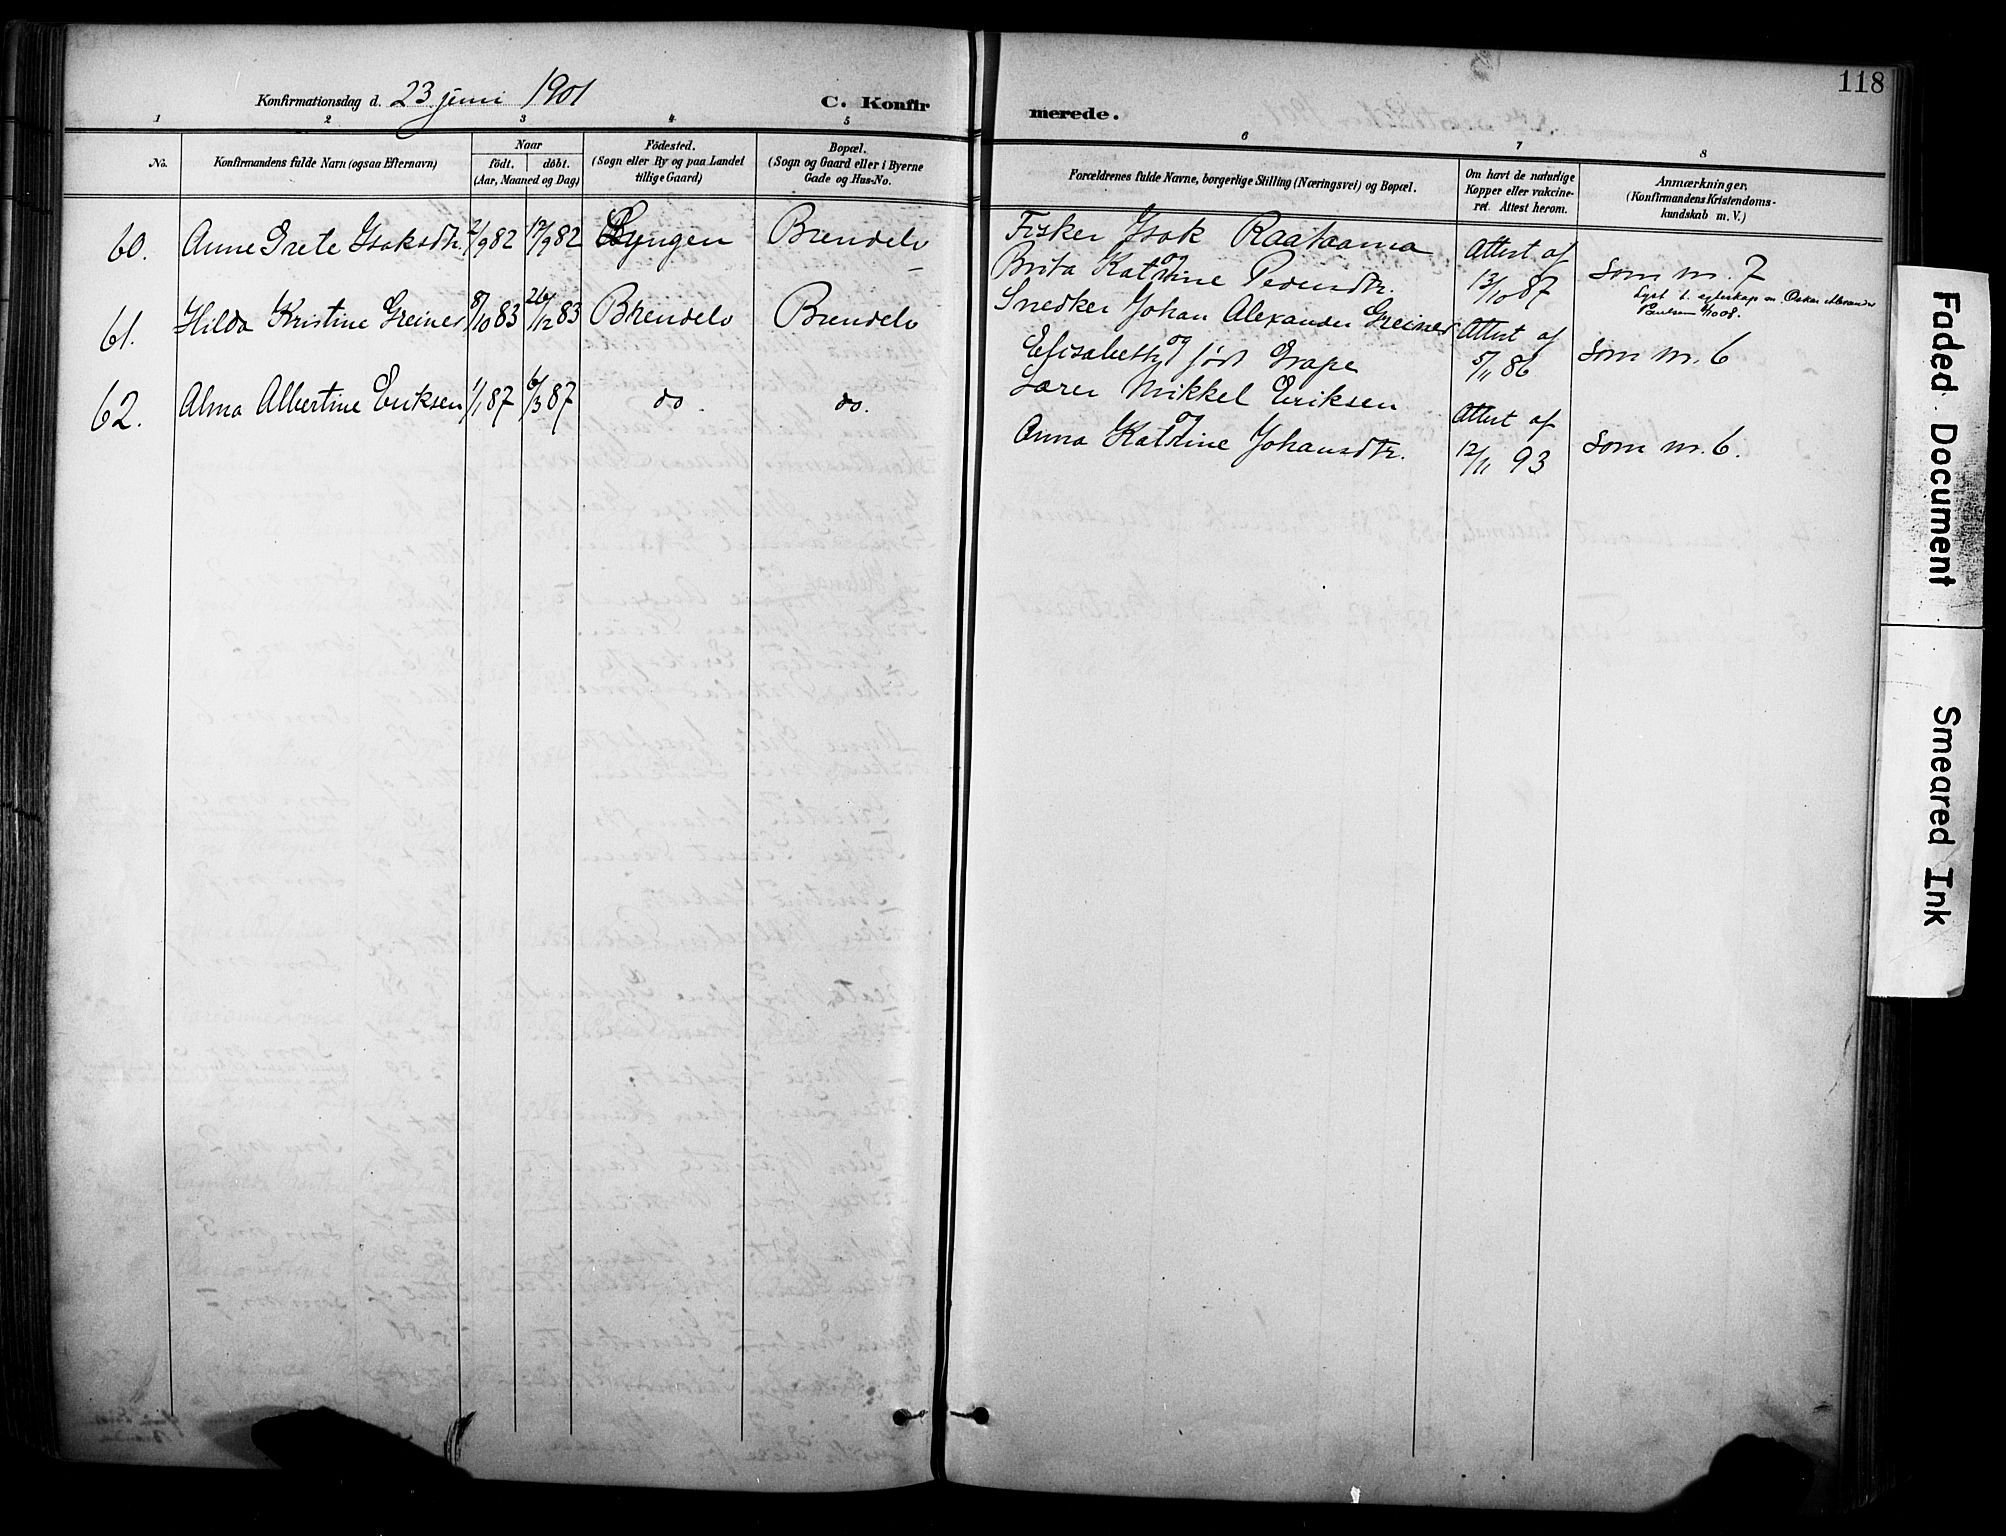 118
Konfirmationsdag d. 23 juni 1901
C. Konfir
merede.
1 2 3 4 5 6 7 8
No.
Konfirmandens fulde Navn (ogsaa Efternavn)
Naar
födt. döbt.
(Aar, Maaned og Dag)
Födested.
(Sogn eller By og paa Landet
tillige Gaard)
Bopæl.
(Sogn og Gaard eller i Byerne
Gade og Hus-No.
Forældrenes fulde Navne, borgerlige Stilling (Næringsvei) og Bopæl.
Om havt de naturlige
Kopper eller vakcine-
ret. Attest herom.
Anmærkninger,
(Konfirmandens Kristendoms-
kundskab m. V.)
60. Anne Grete Isaksdtr. 2/9 82 17/9 82 Lyngen Brendelv
Fisker Isak Raataama
og
Brita Katrine Pedersdtr.
Attest af
13/10 87
som nr. 7
61. Hilda Kristine Greiner 8/10 83 26/12 83 Brendelv Brendelv
Snedker Johan Alexander Greiner
og
Elisabeth født Grape
Attest af
5/11 86
Lyst t. egteskap m. Oskar Alexander
som nr. 6
62. Alma Albertine Eriksen 1/1 87 6/3 87 do. do.
Lærer Mikkel Eriksen
og
Anna Katrine Johansdtr.
Attest af
12/11 93
som nr. 6.
Faded Document
Smeared Ink